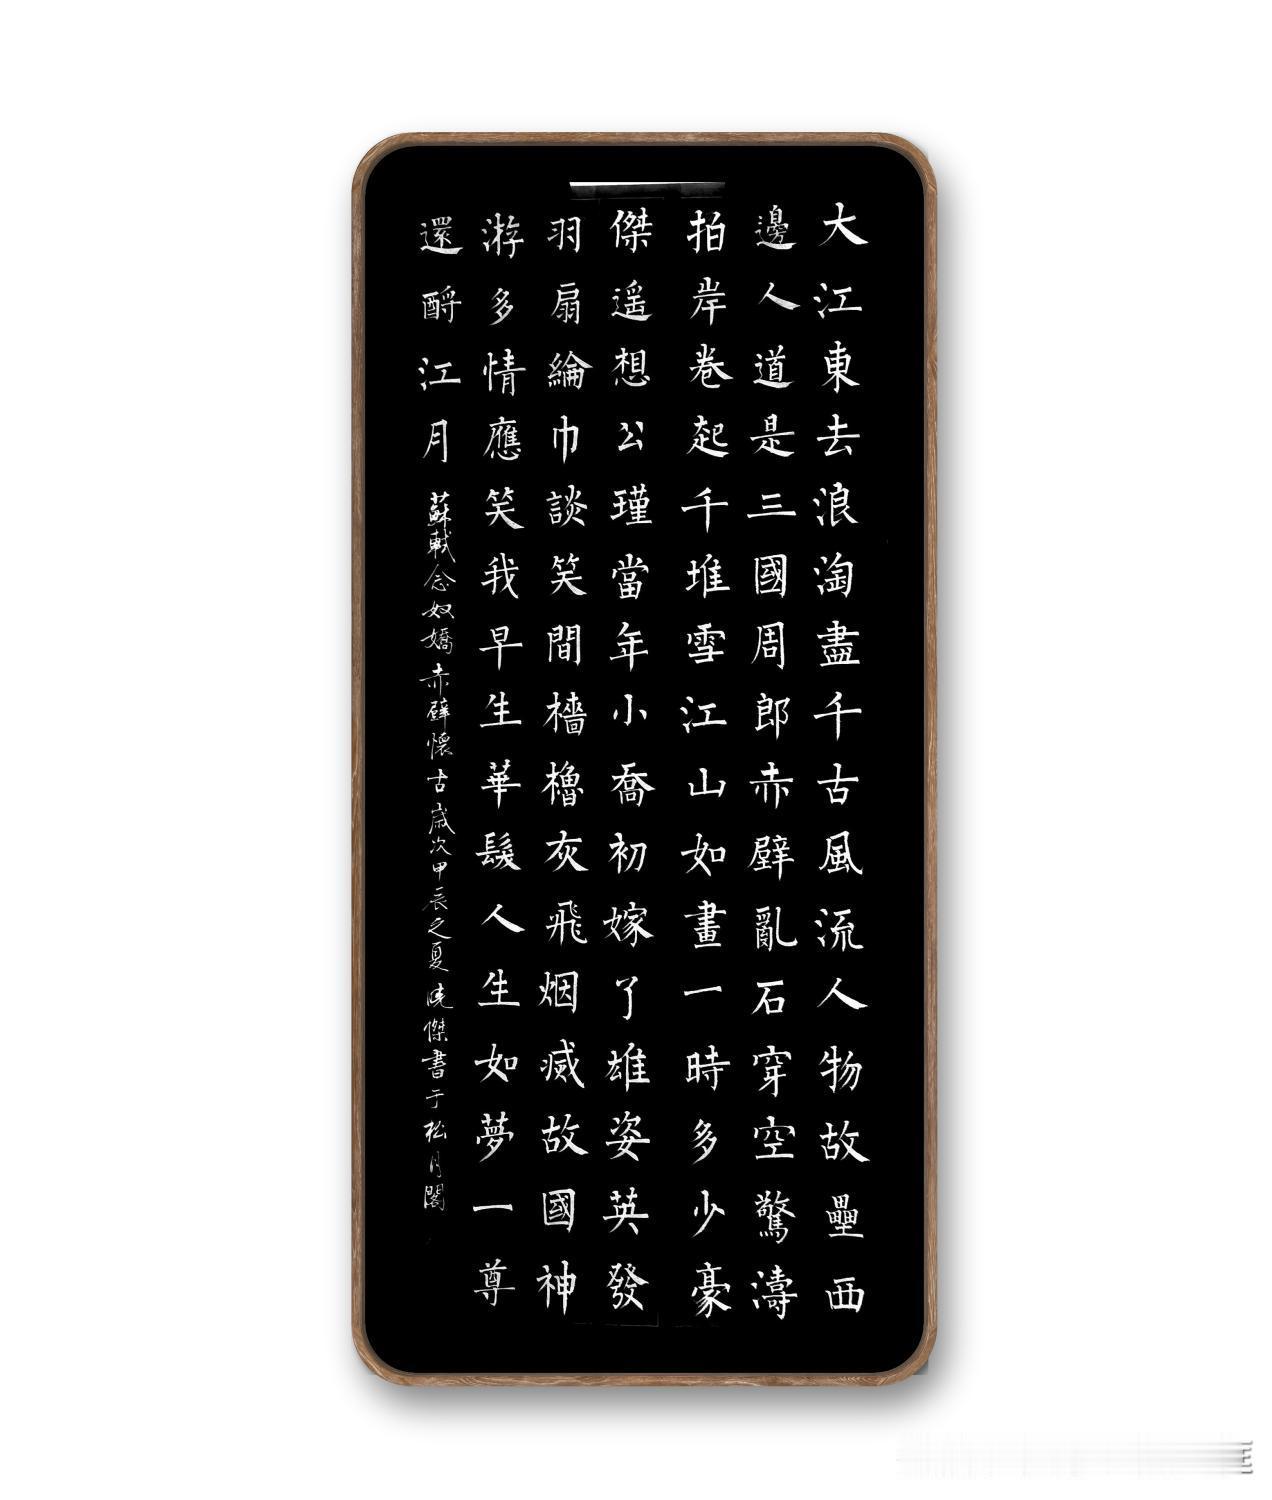 大江東去浪淘盡千古風流人物故壘西
邊人道是三國周郎赤壁亂石穿空驚濤
拍岸卷起千堆雪江山如畫一時多少豪
傑遥想公瑾當年小喬初嫁了雄姿英發
羽扇綸巾談笑間檣櫓灰飛烟滅故國神
游多情應笑我早生華髮人生如夢一尊
還酹江月 蘇軾念奴嬌赤壁懷古歲次甲辰之夏曉傑書于松月閣